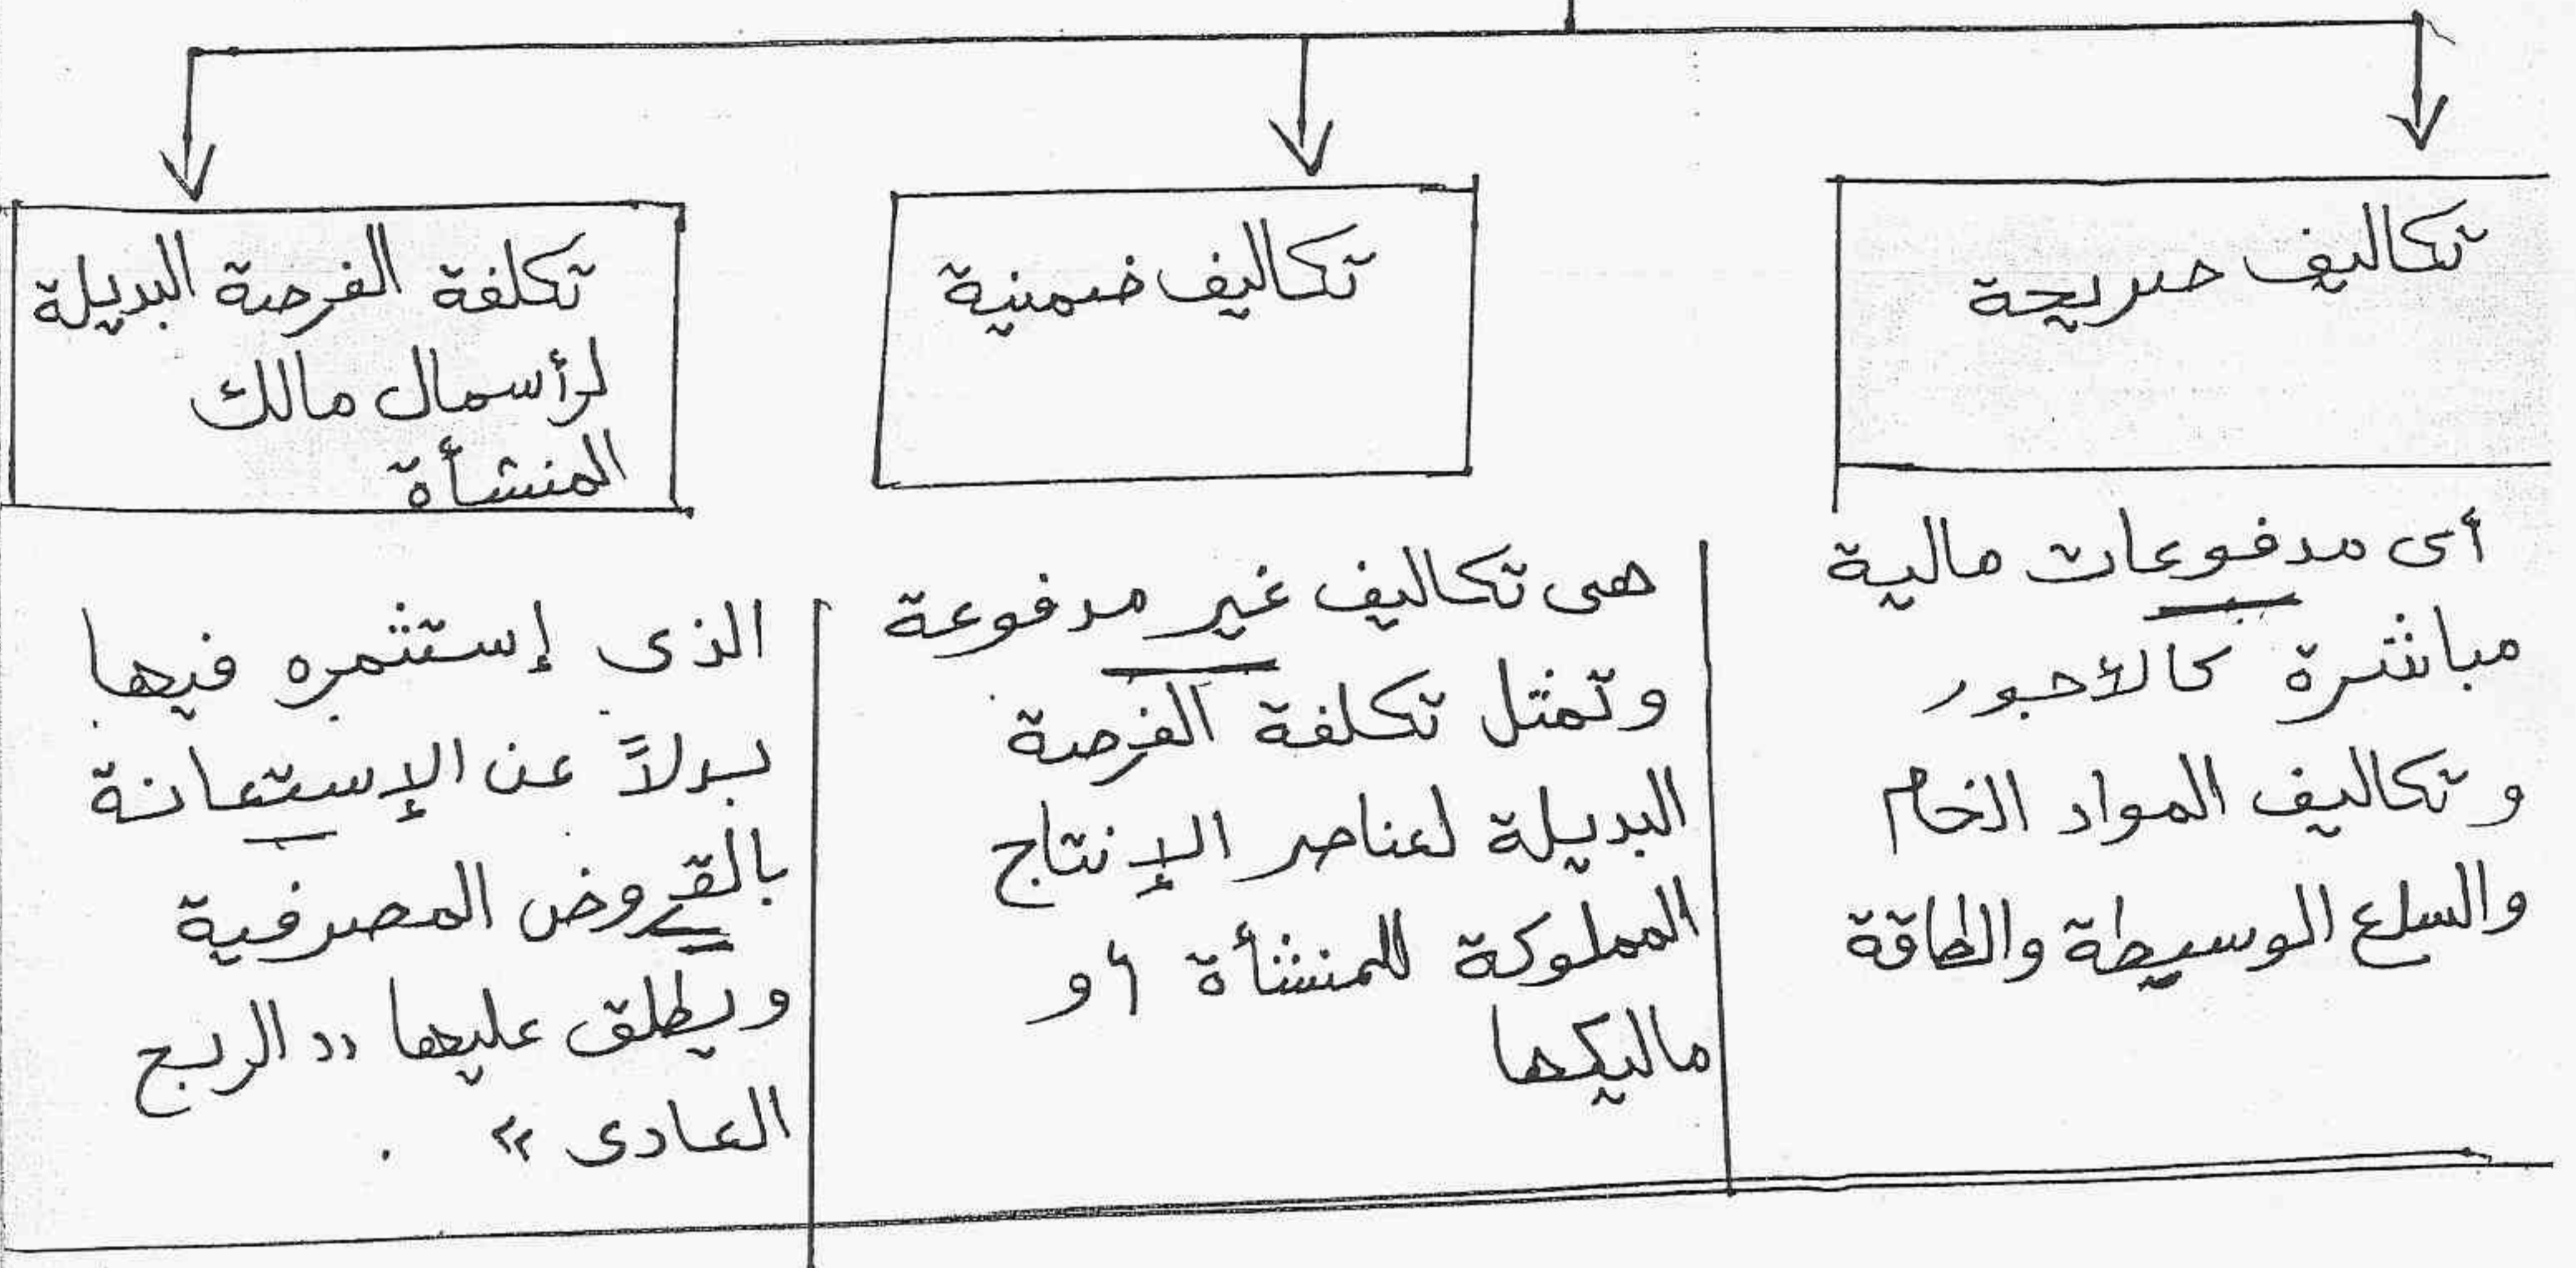 تكاليف صريحة
أى مدفوعات مالية
مباشرة كالأجور
و تكاليف المواد الخام
والسلع الوسيطة والطاقة
تكاليف ضمنية
هى تكاليف غير مدفوعة
وتمثل تكلفة الفرصة
البديلة لعناصر الإنتاج
المملوكة للمنشأة أو
ماليكها
تكلفة الفرصة البديلة
لرأسمال مالك
المنشأة
الذى إستثمره فيها
بدلاً عن الإستعانة
بالقروض المصرفية
ويطلق عليها "الربح
العادى" .